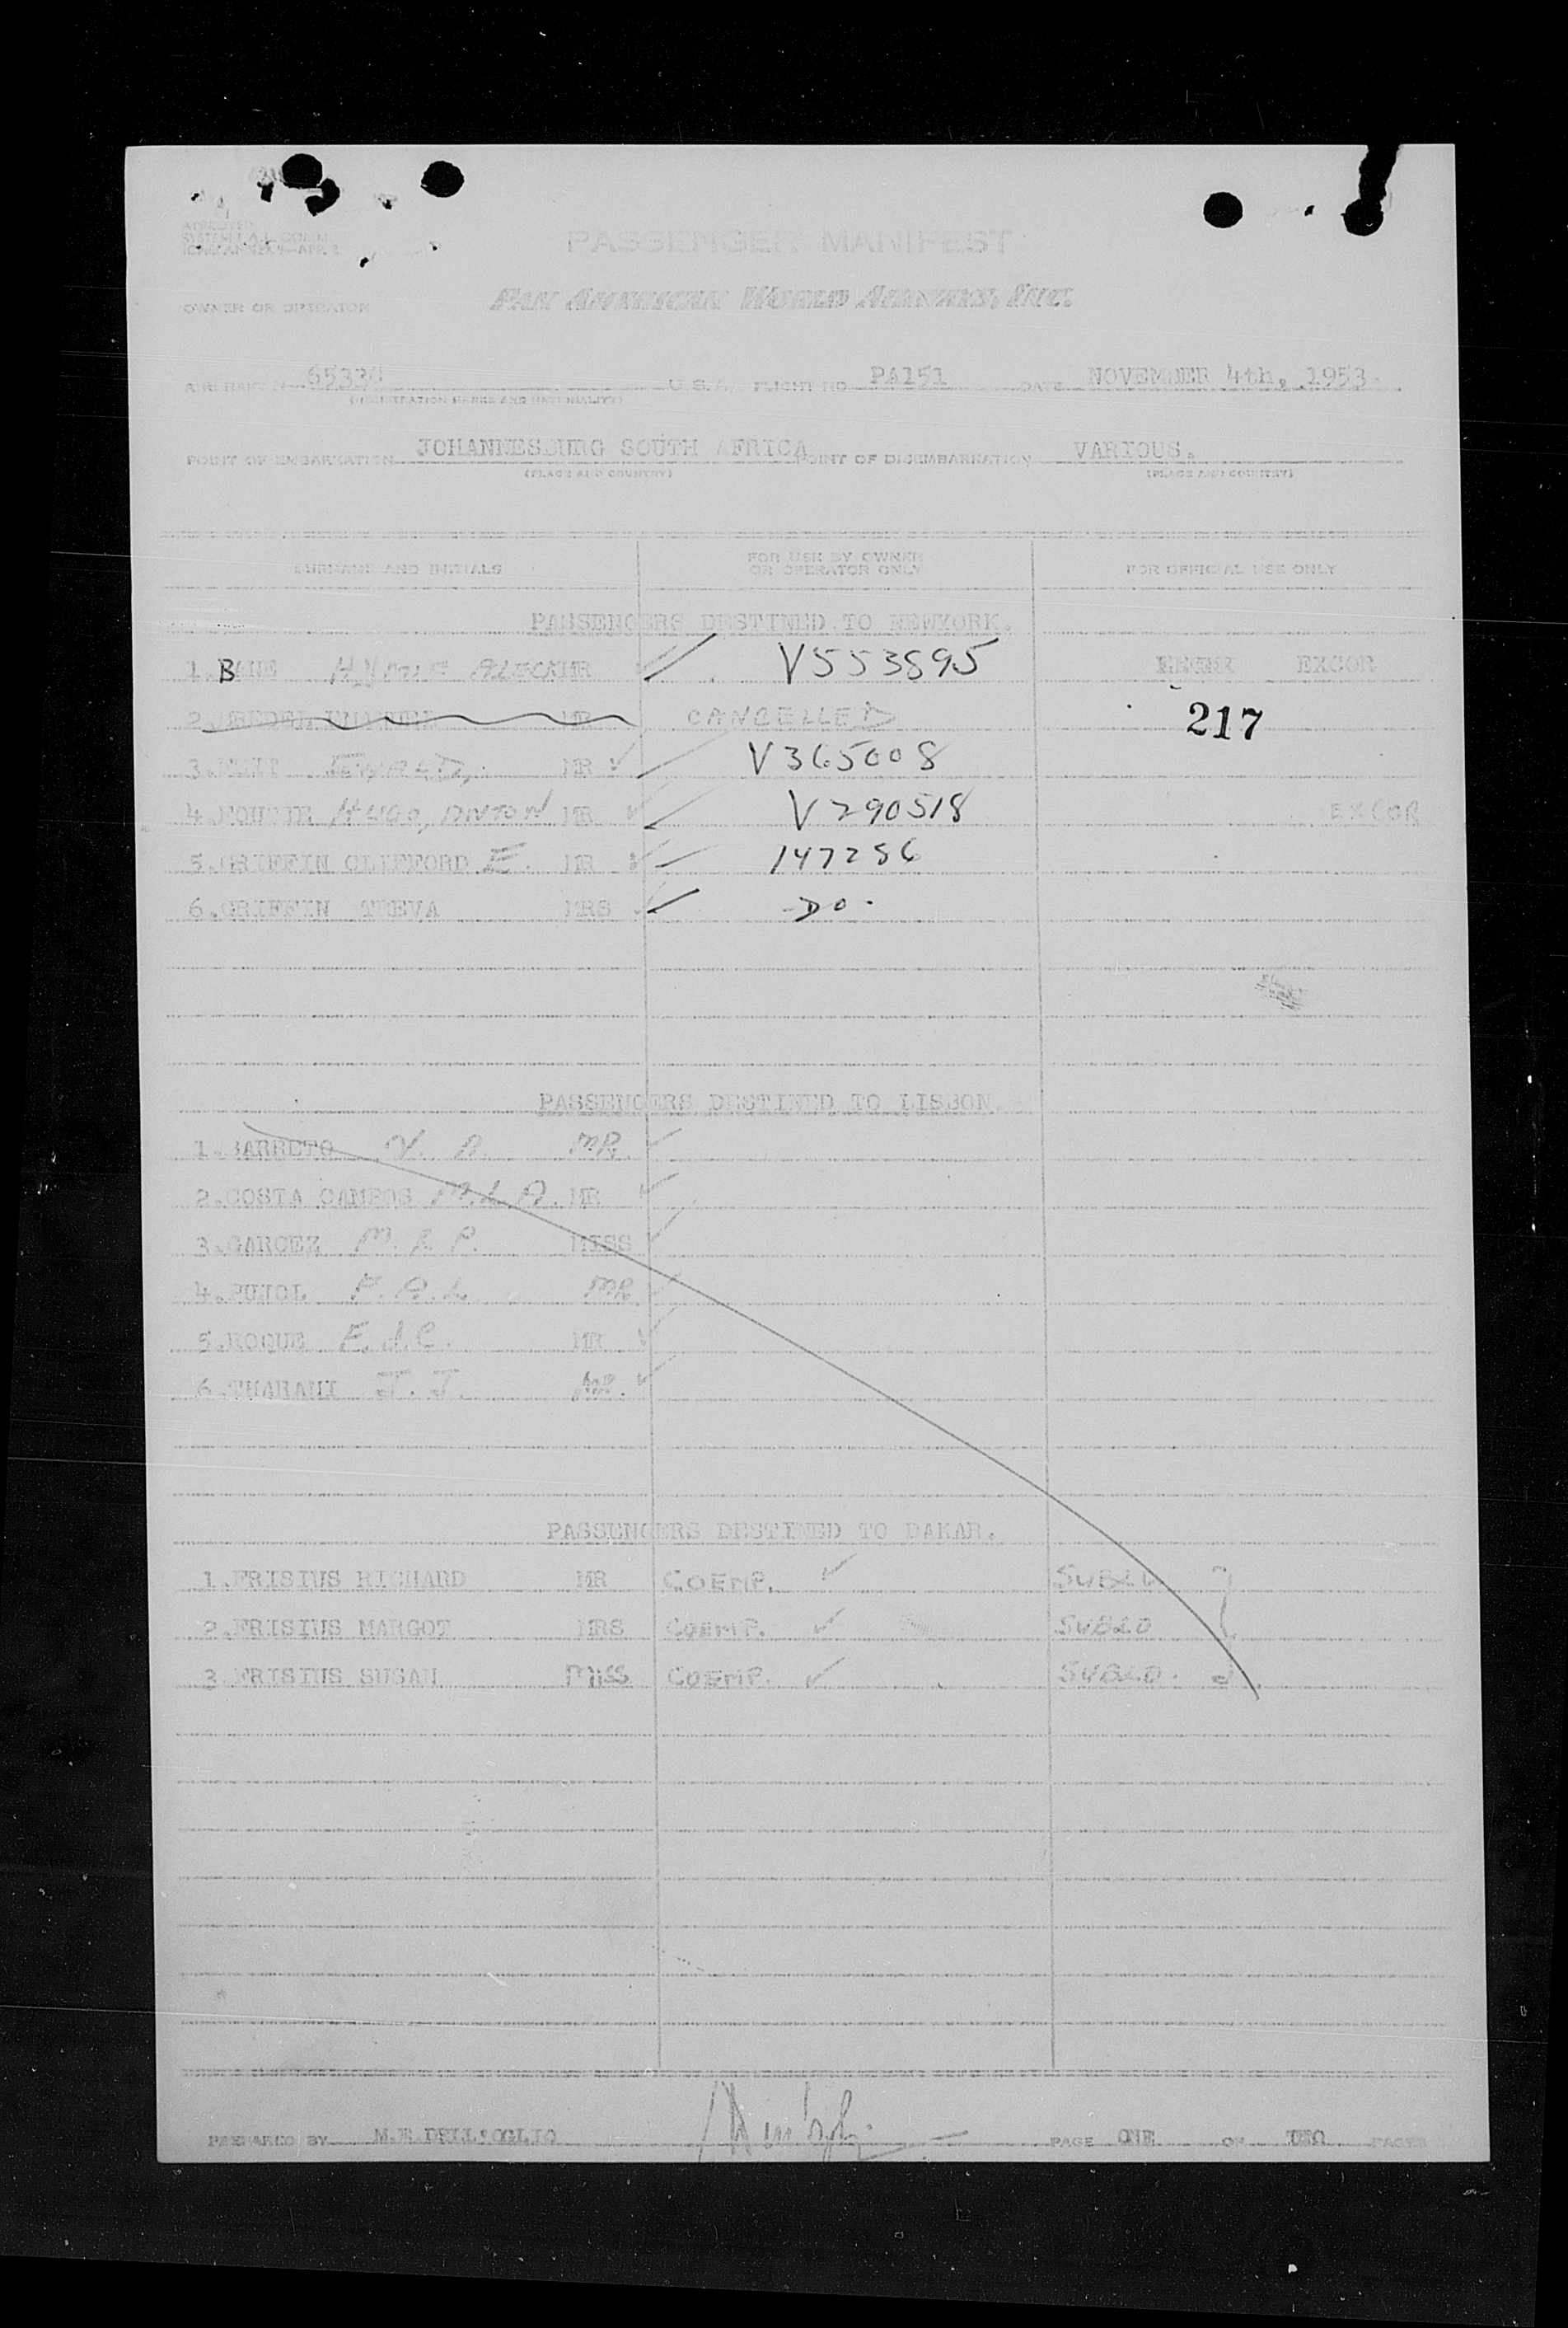 PASSENGER MANIFEST
OWNER OR OPERATOR PAN AMERICAN WORLD AIRWAYS, INC.
U.S.A. FLIGHT NO. PA151 DATE NOVEMBER 4th, 1953.
(REGISTRATION MARKS AND NATIONALITY)
POINT OF EMBARKATION JOHANNESBURG SOUTH AFRICA POINT OF DISEMBARKATION VARIOUS.
(PLACE AND COUNTRY) (PLACE AND COUNTRY)
SURNAME AND INITIALS FOR USE BY OWNER OR OPERATOR ONLY FOR OFFICIAL USE ONLY
PASSENGERS DESTINED TO NEWYORK.
1. BANE MR V553895 EXCOR
2. MR CANCELLED 217
3. MR V365008
4. HUGO, ANTON MR V290518 EXCOR
5. GRIFFIN CLIFFORD E. MR 147256
6. GRIFFIN TREVA MRS -DO-
PASSENGERS DESTINED TO LISBON.
1. BARRETO V. A. MR.
2. COSTA CAMPOS M.L.A. MR
3. GARCEZ M. R. P. MISS
4. PUJOL F. A. L. MR
5. ROQUE E. J. C. MR
6. THARANI J. J. MR.
PASSENGERS DESTINED TO DAKAR.
1. FRISIUS RICHARD MR COEMP. SUBLO
2. FRISIUS MARGOT MRS COEMP. SUBLO
3. FRISIUS SUSAN MISS COEMP. SUBLO.
PREPARED BY M.E. DELL'OGLIO PAGE ONE OF TWO PAGES